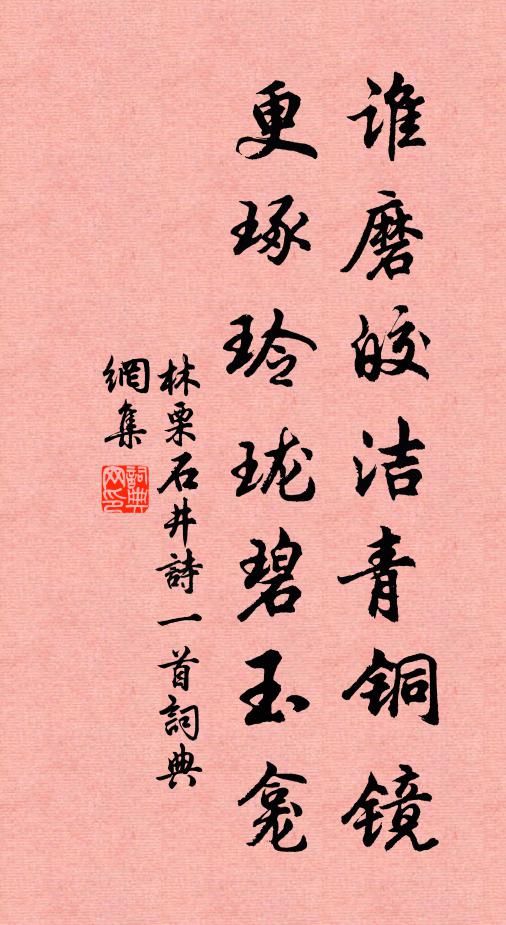 谁磨皎洁青铜镜
更琢玲珑碧玉龛
林栗石井詩一首詞典
網集
詞典
网印